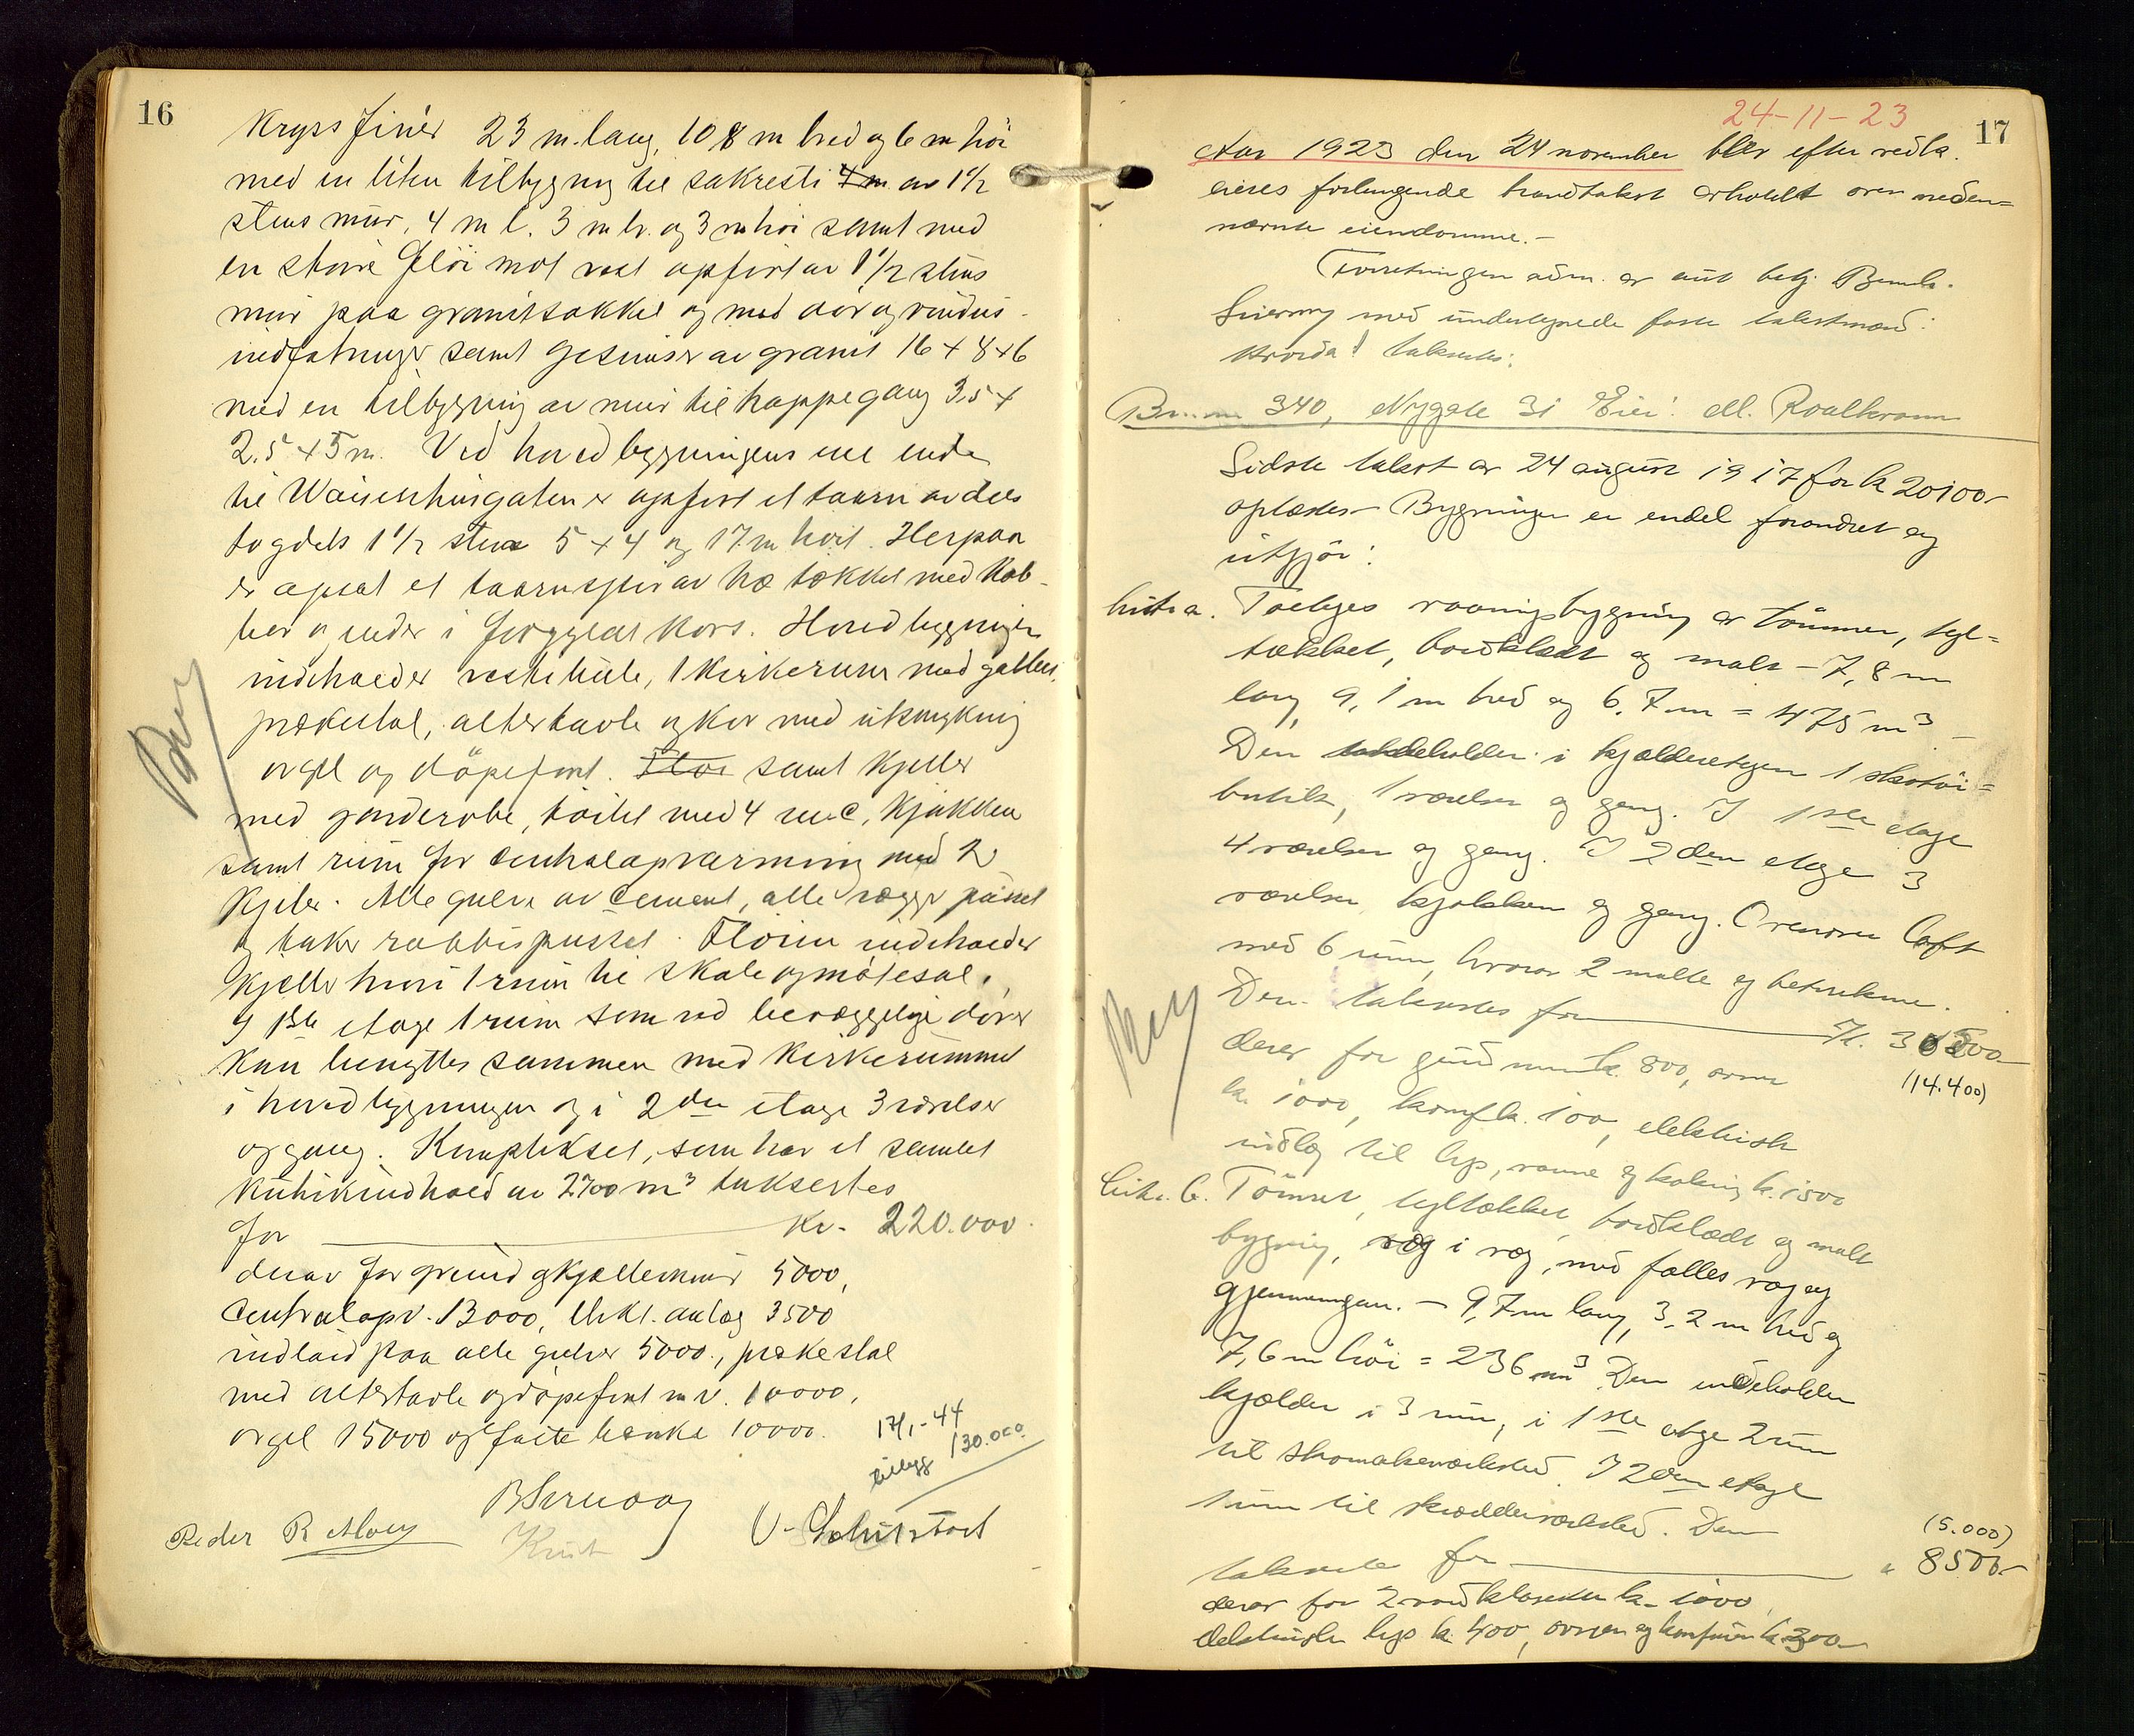 16
Kryss finér 23 m. lang, 10,8 m bred og 6 m høi
med en liten tilbygning til sakresti 4 m av 1 1/2
stens mur, 4 m l. 3 m br. og 3 m høi samt med
en større fløi mot vest opført av 1 1/2 stens
mur paa granitsokkel og med dør og vindus-
indfatninger samt gesimser av granit 16 + 8 + 6
med en tilbygning av mur til trappegang 3,5 +
2,5 + 5 m. Ved hovedbygningens ene ende
til Waisenhusgaten er opført et taarn av dels
to og dels 1 1/2 sten 5 + 4 og 17 m høit. Herpaa
er opsat et taarnspir av træ tækket med kob-
ber og ender i forgyldt kors. Hovedbygningen
indeholder vestibule, 1 kirkerum med galleri,
prækestol, altertavle og kor med utsmykning
orgel og döpefont. Fløi samt kjeller
med garderobe, toilet med 4 w.c, kjøkken
samt rum for centralopvarming med 2
kjeler. Alle gulve av cement, alle vægge pusset
og taker rabbitspusset. Fløien indeholder
kjeller hvori 1 rum til skole og møtesal.
I 1ste etage 1 rum som ved bevægelige dører
kan benyttes sammen med kirkerummet
i hovedbygningen og i 2den etage 3 værelser
og gang. Komplekset, som har et samlet
kubikindhold av 2700 m³ taksertes
for Kr. 220.000.
derav for grund og kjellermur 5000,
Centralopv. 13000, elekt. anlæg 3500
indlaid paa alle gulver 5000, prækestol
med altertavle og döpefont m.v. 10000,
orgel 15000 og faste bænke 10000.
17/1-44
tillegg 130.000
Peder R
V.
24-11-23
17
Aar 1923 den 24 november blev efter vedk.
eieres forlangende brandtakst avholdt over neden=
nævnte eiendomme.-
Forretningen adm. av
med undertegnede faste takstmænd:
Hvorda! taksertes:
340, Nygate 31 Eier: M.
Sidste takst av 24 august 1917 for kr 20100-
oplæstes- Bygningen er endel forandret og
utgjør:
Litr a. Toetages vaaningsbygning av tømmer, tegl=
tækket, bordklædt og malt - 7,8 m
lang, 9,1 m bred og 6,7 m = 475 m³ -
Den indeholder i kjælderetagen 1 skotøi=
butik, 1 værelse og gang. I 1ste etage
4 værelser og gang. I 2den etage 3
værelser kjøkken og gang. Ovenover loft
med 6 rum, hvorav 2 malte og betrukne.
Den takseres for Kr. 30500-
(14.400)
derav for grundmur k. 800, ovne
k. 1000, komf k. 100, elektrisk
indlæg til lys, varme og kokning k. 1500
Litr. b. Tømret, tegltækket, bordklædt og malt
bygning, væg i væg, med fælles væg og
gjennemgan. - 9,7 m lang, 3,2 m bred og
7,6 m høi = 236 m³ Den indeholder
kjælder i 3 rum, i 1ste etage 2 rum
til skomakerværksted. I 2den etage
1 rum til skrædderværksted. Den
(5.000)
takserte for " 8500-
derav for 2 vandklosetter k. 1000,
elektrisk lys k. 400, ovnen og komfuren k 300-